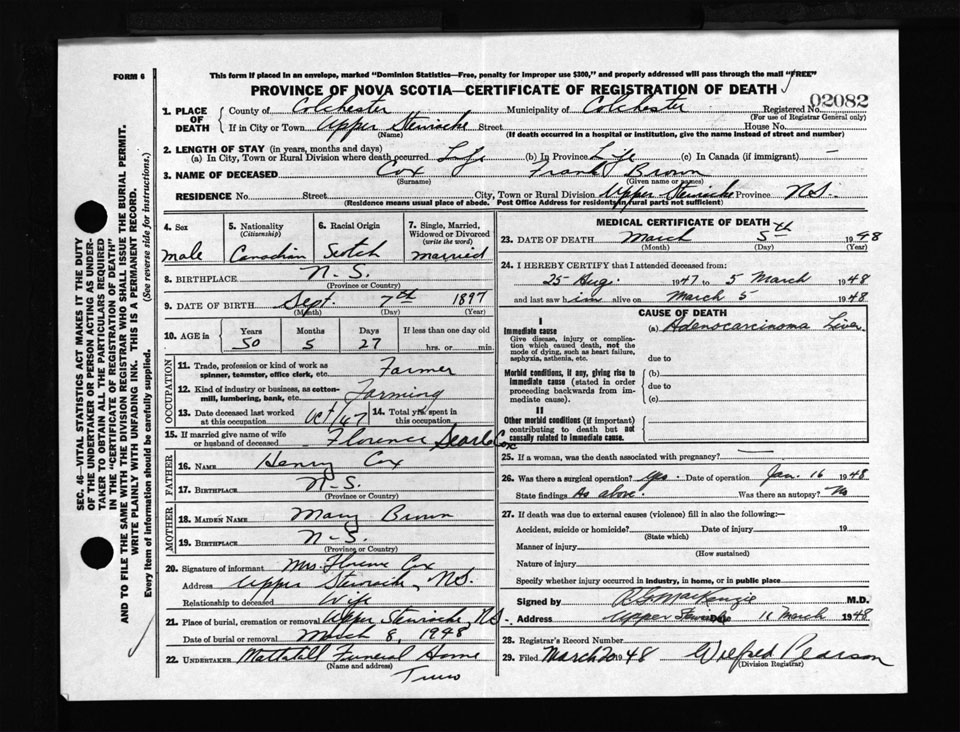 FORM 6
This form if placed in an envelope, marked "Dominion Statistics—Free, penalty for improper use $300," and properly addressed will pass through the mail "FREE"
PROVINCE OF NOVA SCOTIA—CERTIFICATE OF REGISTRATION OF DEATH
02082
1. PLACE OF DEATH County of Colchester Municipality of Colchester Registered No. (For use of Registrar General only)
If in City or Town Upper Stewiacke Street House No.
(Name) (If death occurred in a hospital or institution, give the name instead of street and number)
2. LENGTH OF STAY (in years, months and days)
(a) In City, Town or Rural Division where death occurred Life (b) In Province Life (c) In Canada (if immigrant) —
3. NAME OF DECEASED Cox Frank Brown
(Surname) (Given name or names)
RESIDENCE No. Street City, Town or Rural Division Upper Stewiacke Province N.S.
(Residence means usual place of abode. Post Office Address for residents in rural parts not sufficient)
4. Sex male
5. Nationality (Citizenship) Canadian
6. Racial Origin Scotch
7. Single, Married, Widowed or Divorced (write the word) married
8. BIRTHPLACE N.S.
(Province or Country)
9. DATE OF BIRTH Sept. 7th 1897
(Month) (Day) (Year)
10. AGE in Years 50 Months 5 Days 27 If less than one day old hrs. or min.
OCCUPATION
11. Trade, profession or kind of work as spinner, teamster, office clerk, etc. Farmer
12. Kind of industry or business, as cotton-mill, lumbering, bank, etc. Farming
13. Date deceased last worked at this occupation Oct/47 14. Total yrs. spent in this occupation
15. If married give name of wife or husband of deceased Florence Searle Cox
FATHER
16. NAME Henry Cox
17. BIRTHPLACE N.S.
(Province or Country)
MOTHER
18. MAIDEN NAME Mary Brown
19. BIRTHPLACE N.S.
(Province or Country)
20. Signature of informant Mrs. Florence Cox
Address Upper Stewiacke, N.S.
Relationship to deceased Wife
21. Place of burial, cremation or removal Upper Stewiacke, N.S.
Date of burial or removal March 8, 1948
22. UNDERTAKER Mattatall Funeral Home
(Name and address)
Truro
MEDICAL CERTIFICATE OF DEATH
23. DATE OF DEATH March 5th 1948
(Month) (Day) (Year)
24. I HEREBY CERTIFY that I attended deceased from:
25 Aug. 1947 to 5 March 1948
and last saw him alive on March 5 1948
CAUSE OF DEATH
I
Immediate cause
Give disease, injury or complication which caused death, not the mode of dying, such as heart failure, asphyxia, asthenia, etc.
(a) Adenocarcinoma Liver
due to
Morbid conditions, if any, giving rise to immediate cause (stated in order proceeding backwards from immediate cause).
(b)
due to
(c)
II
Other morbid conditions (if important) contributing to death but not causally related to immediate cause.
25. If a woman, was the death associated with pregnancy? —
26. Was there a surgical operation? yes. Date of operation Jan. 16 1948
State findings As above. Was there an autopsy? No
27. If death was due to external causes (violence) fill in also the following:—
Accident, suicide or homicide? Date of injury 19
(State which)
Manner of injury
(How sustained)
Nature of injury
Specify whether injury occurred in industry, in home, or in public place
Signed by MacKenzie M.D.
Address Upper Stewiacke Date 11 March 1948
28. Registrar's Record Number
29. Filed March 20 1948 Wilfred Pearson
(Division Registrar)
SEC. 46—VITAL STATISTICS ACT MAKES IT THE DUTY
OF THE UNDERTAKER OR PERSON ACTING AS UNDER-
TAKER TO OBTAIN ALL THE PARTICULARS REQUIRED
IN THE "CERTIFICATE OF REGISTRATION OF DEATH"
AND TO FILE THE SAME WITH THE DIVISION REGISTRAR WHO SHALL ISSUE THE BURIAL PERMIT.
WRITE PLAINLY WITH UNFADING INK. THIS IS A PERMANENT RECORD.
Every item of information should be carefully supplied. (See reverse side for instructions.)